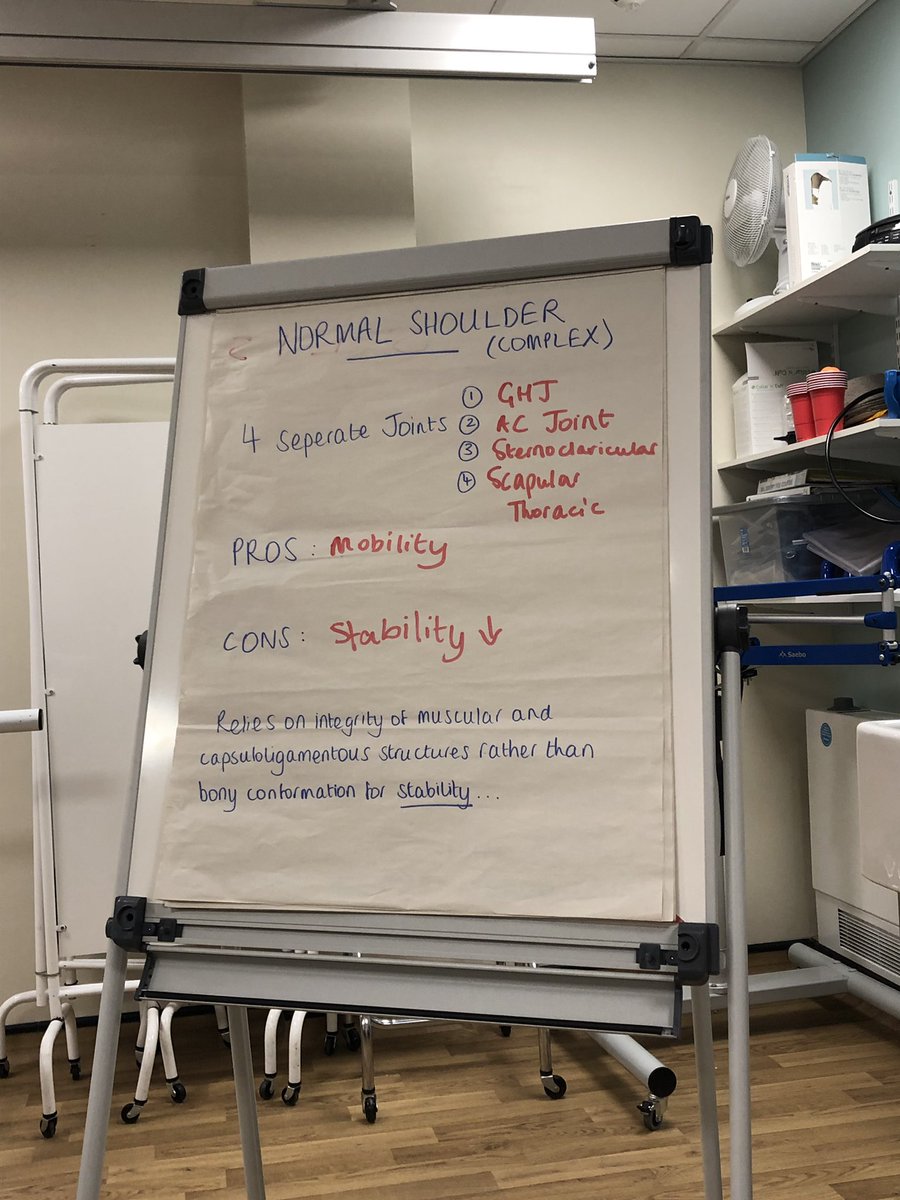 NORMAL SHOULDER
(COMPLEX)
4 Seperate Joints
① GHJ
② AC Joint
③ Sternoclavicular
④ Scapular
Thoracic
PROS : Mobility
CONS : Stability ↓
Relies on integrity of muscular and
capsuloligamentous structures rather than
bony conformation for stability...
Saebo